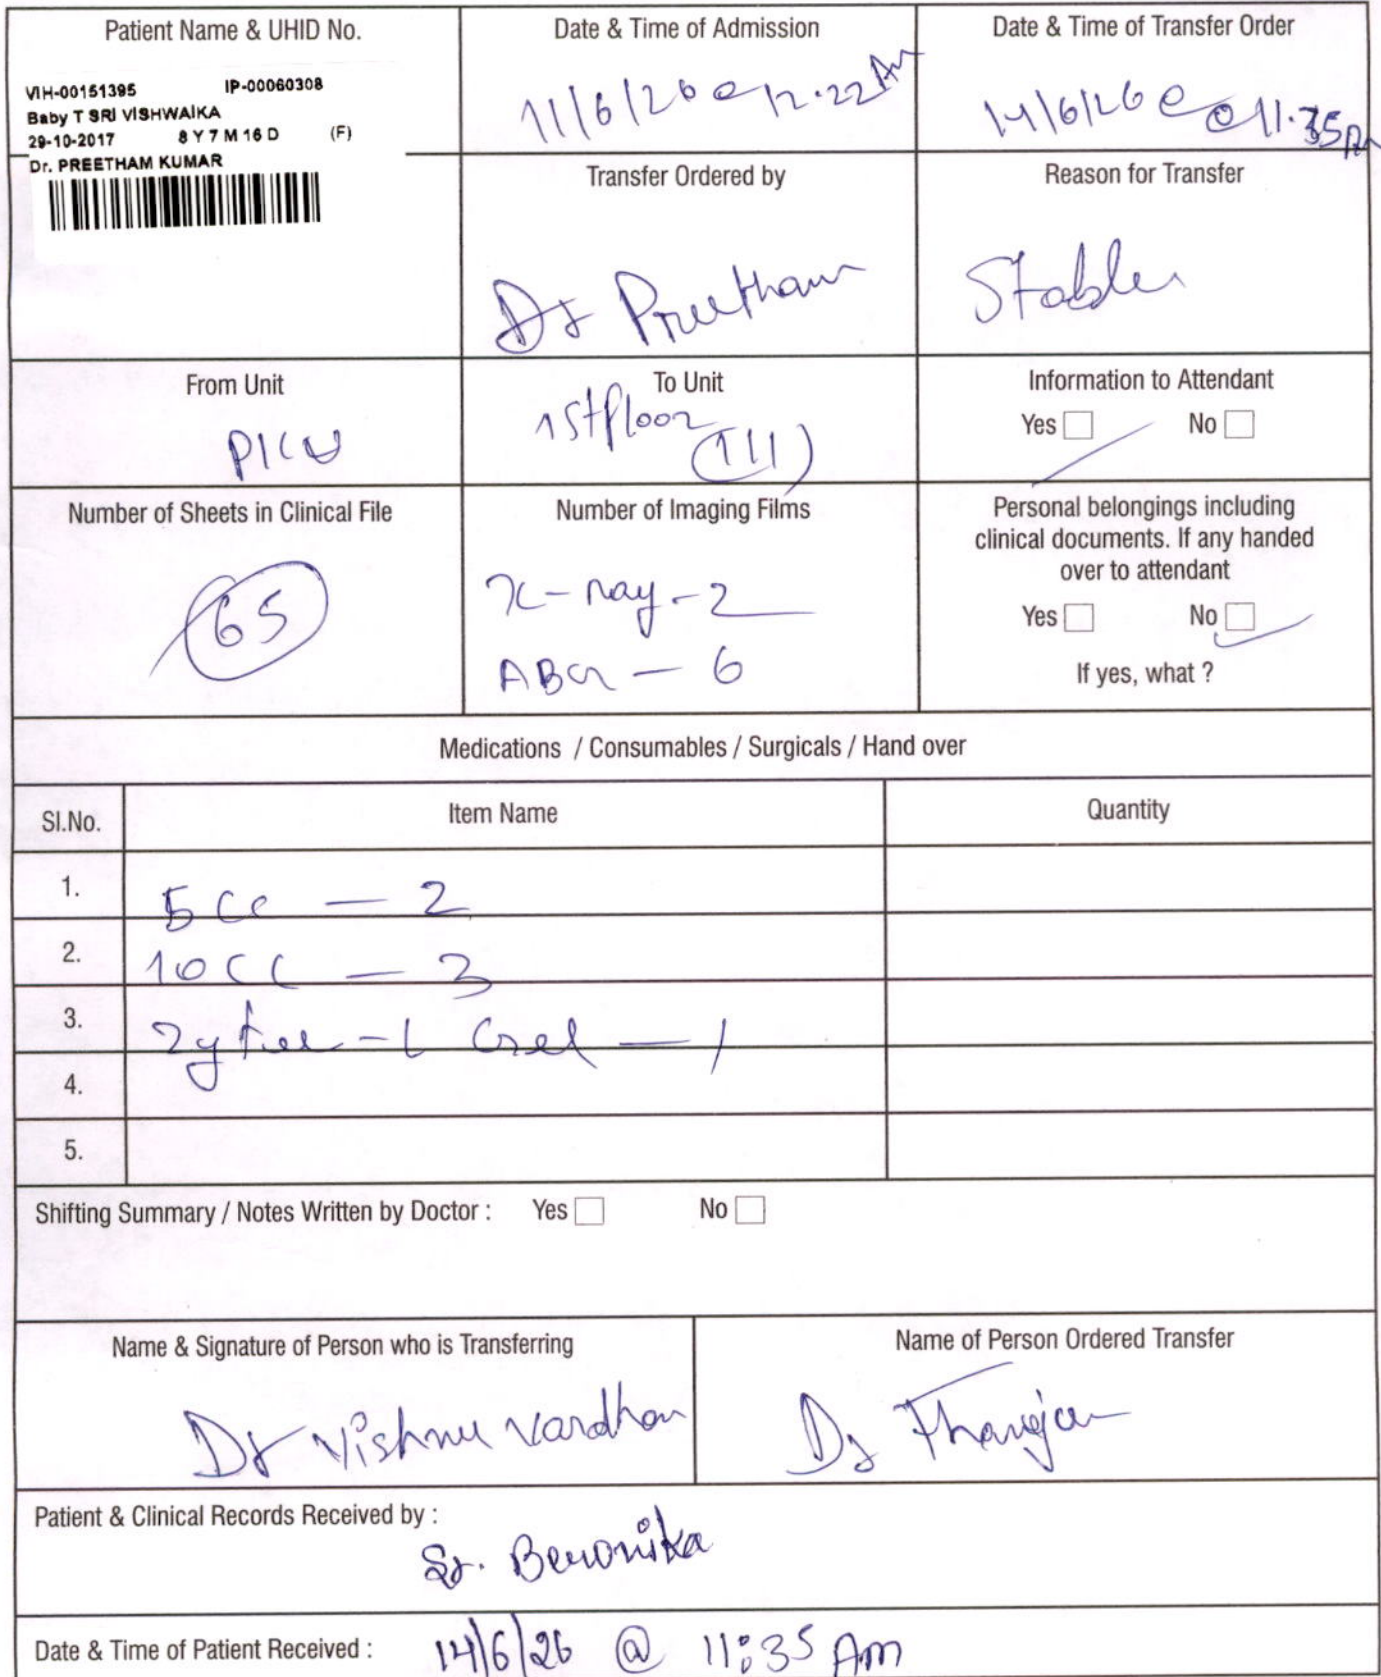 Patient Name & UHID No.
VIH-00151395 IP-00060308
Baby T SRI VISHWAIKA
29-10-2017 8 Y 7 M 16 D (F)
Dr. PREETHAM KUMAR
Date & Time of Admission
11/6/26 @ 12.22 Am
Date & Time of Transfer Order
14/6/26 @ @ 11.35 Am
Transfer Ordered by
Dr Preetham
Reason for Transfer
Stable
From Unit
PICU
To Unit
1st floor
(111)
Information to Attendant
Yes No
Number of Sheets in Clinical File
65
Number of Imaging Films
x-ray - 2
ABG - 6
Personal belongings including
clinical documents. If any handed
over to attendant
Yes No
If yes, what ?
Medications / Consumables / Surgicals / Hand over
Sl.No. Item Name Quantity
1. 5cc - 2
2. 10cc - 3
3. Gel - 1
4.
5.
Shifting Summary / Notes Written by Doctor : Yes No
Name & Signature of Person who is Transferring
Dr Vishnu vardhan
Name of Person Ordered Transfer
Dr
Patient & Clinical Records Received by :
Sr. Beronika
Date & Time of Patient Received : 14/6/26 @ 11:35 Am